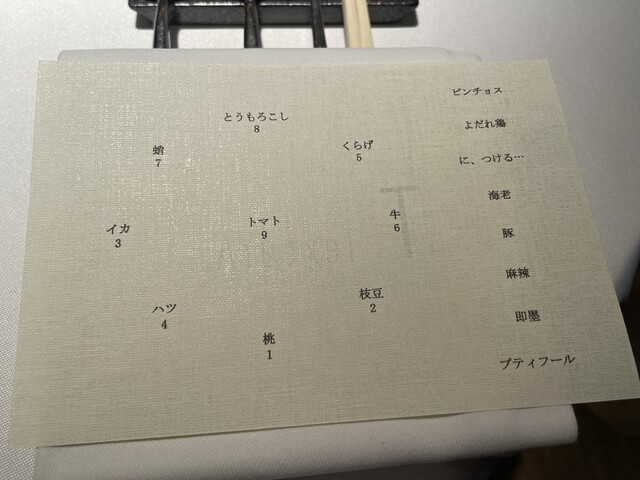 とうもろこし
8
くらげ
5
蛸
7
牛
6
イカ
3
トマト
9
枝豆
2
ハツ
4
桃
1
ピンチョス
よだれ鶏
に、つける…
海老
豚
麻辣
即墨
プティフール